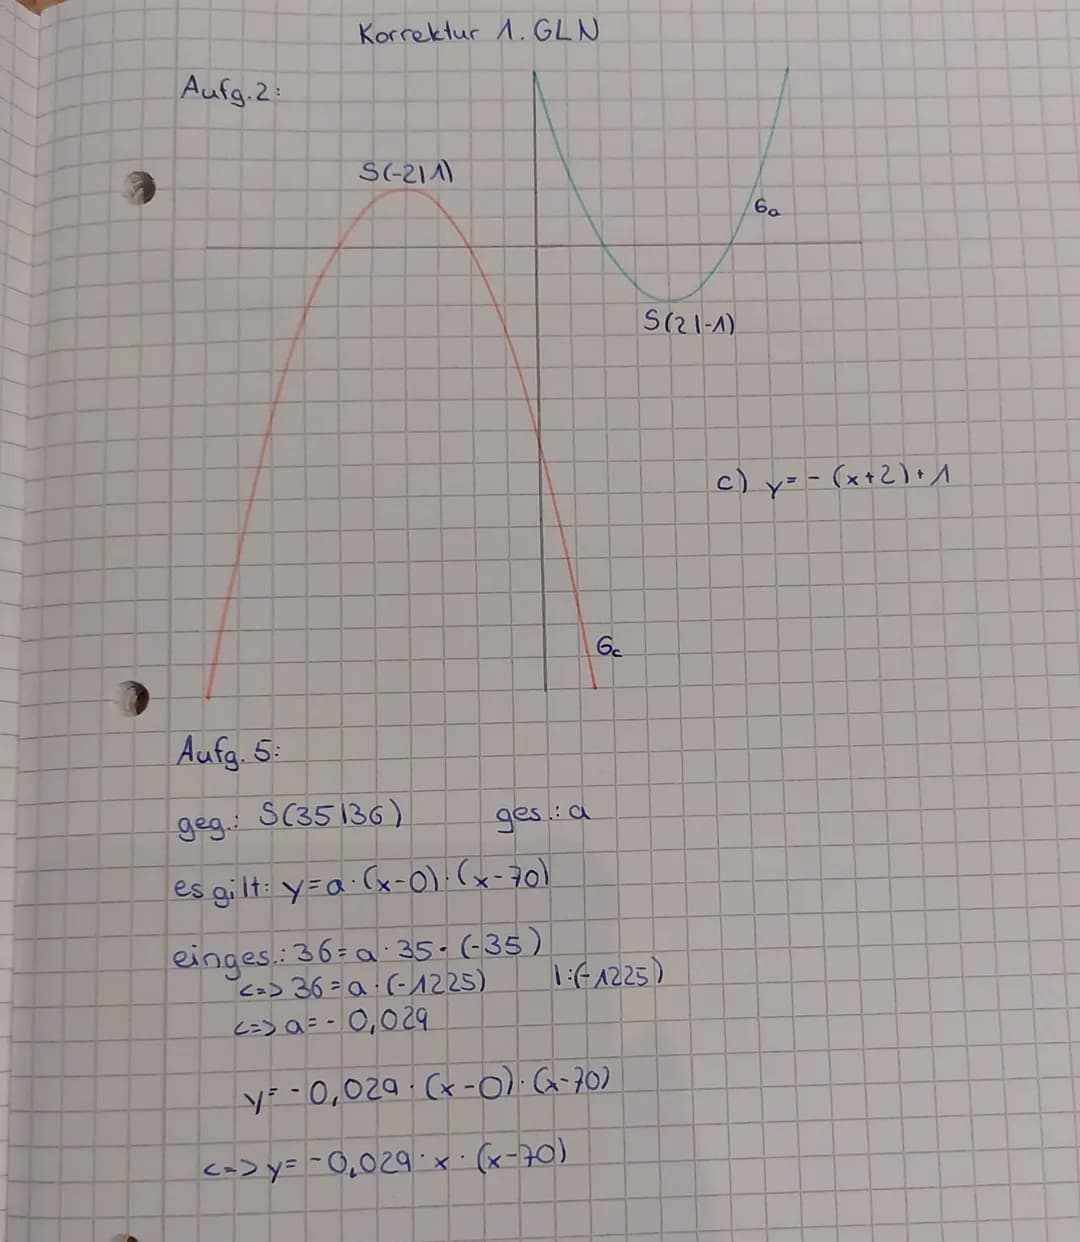 Korrektur 1. GLN
Aufg. 2:
S(-2|1)
Ga
S(2|-1)
c) y = - (x+2) + 1
Gc
Aufg. 5:
geg.: S(35|36) ges.: a
es gilt: y = a · (x-0) · (x-70)
einges.: 36 = a · 35 · (-35)
<=> 36 = a · (-1225) |:(-1225)
<=> a = - 0,029
y = - 0,029 · (x-0) · (x-70)
<=> y = - 0,029 · x · (x-70)